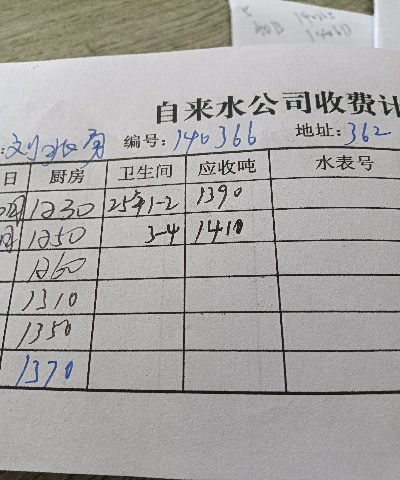 自来水公司收费计
刘 编号: 140366 地址: 362
日 厨房 卫生间 应收吨 水表号
1230 25年1-2 1390
1250 3-4 1410
1260
1310
1350
1370